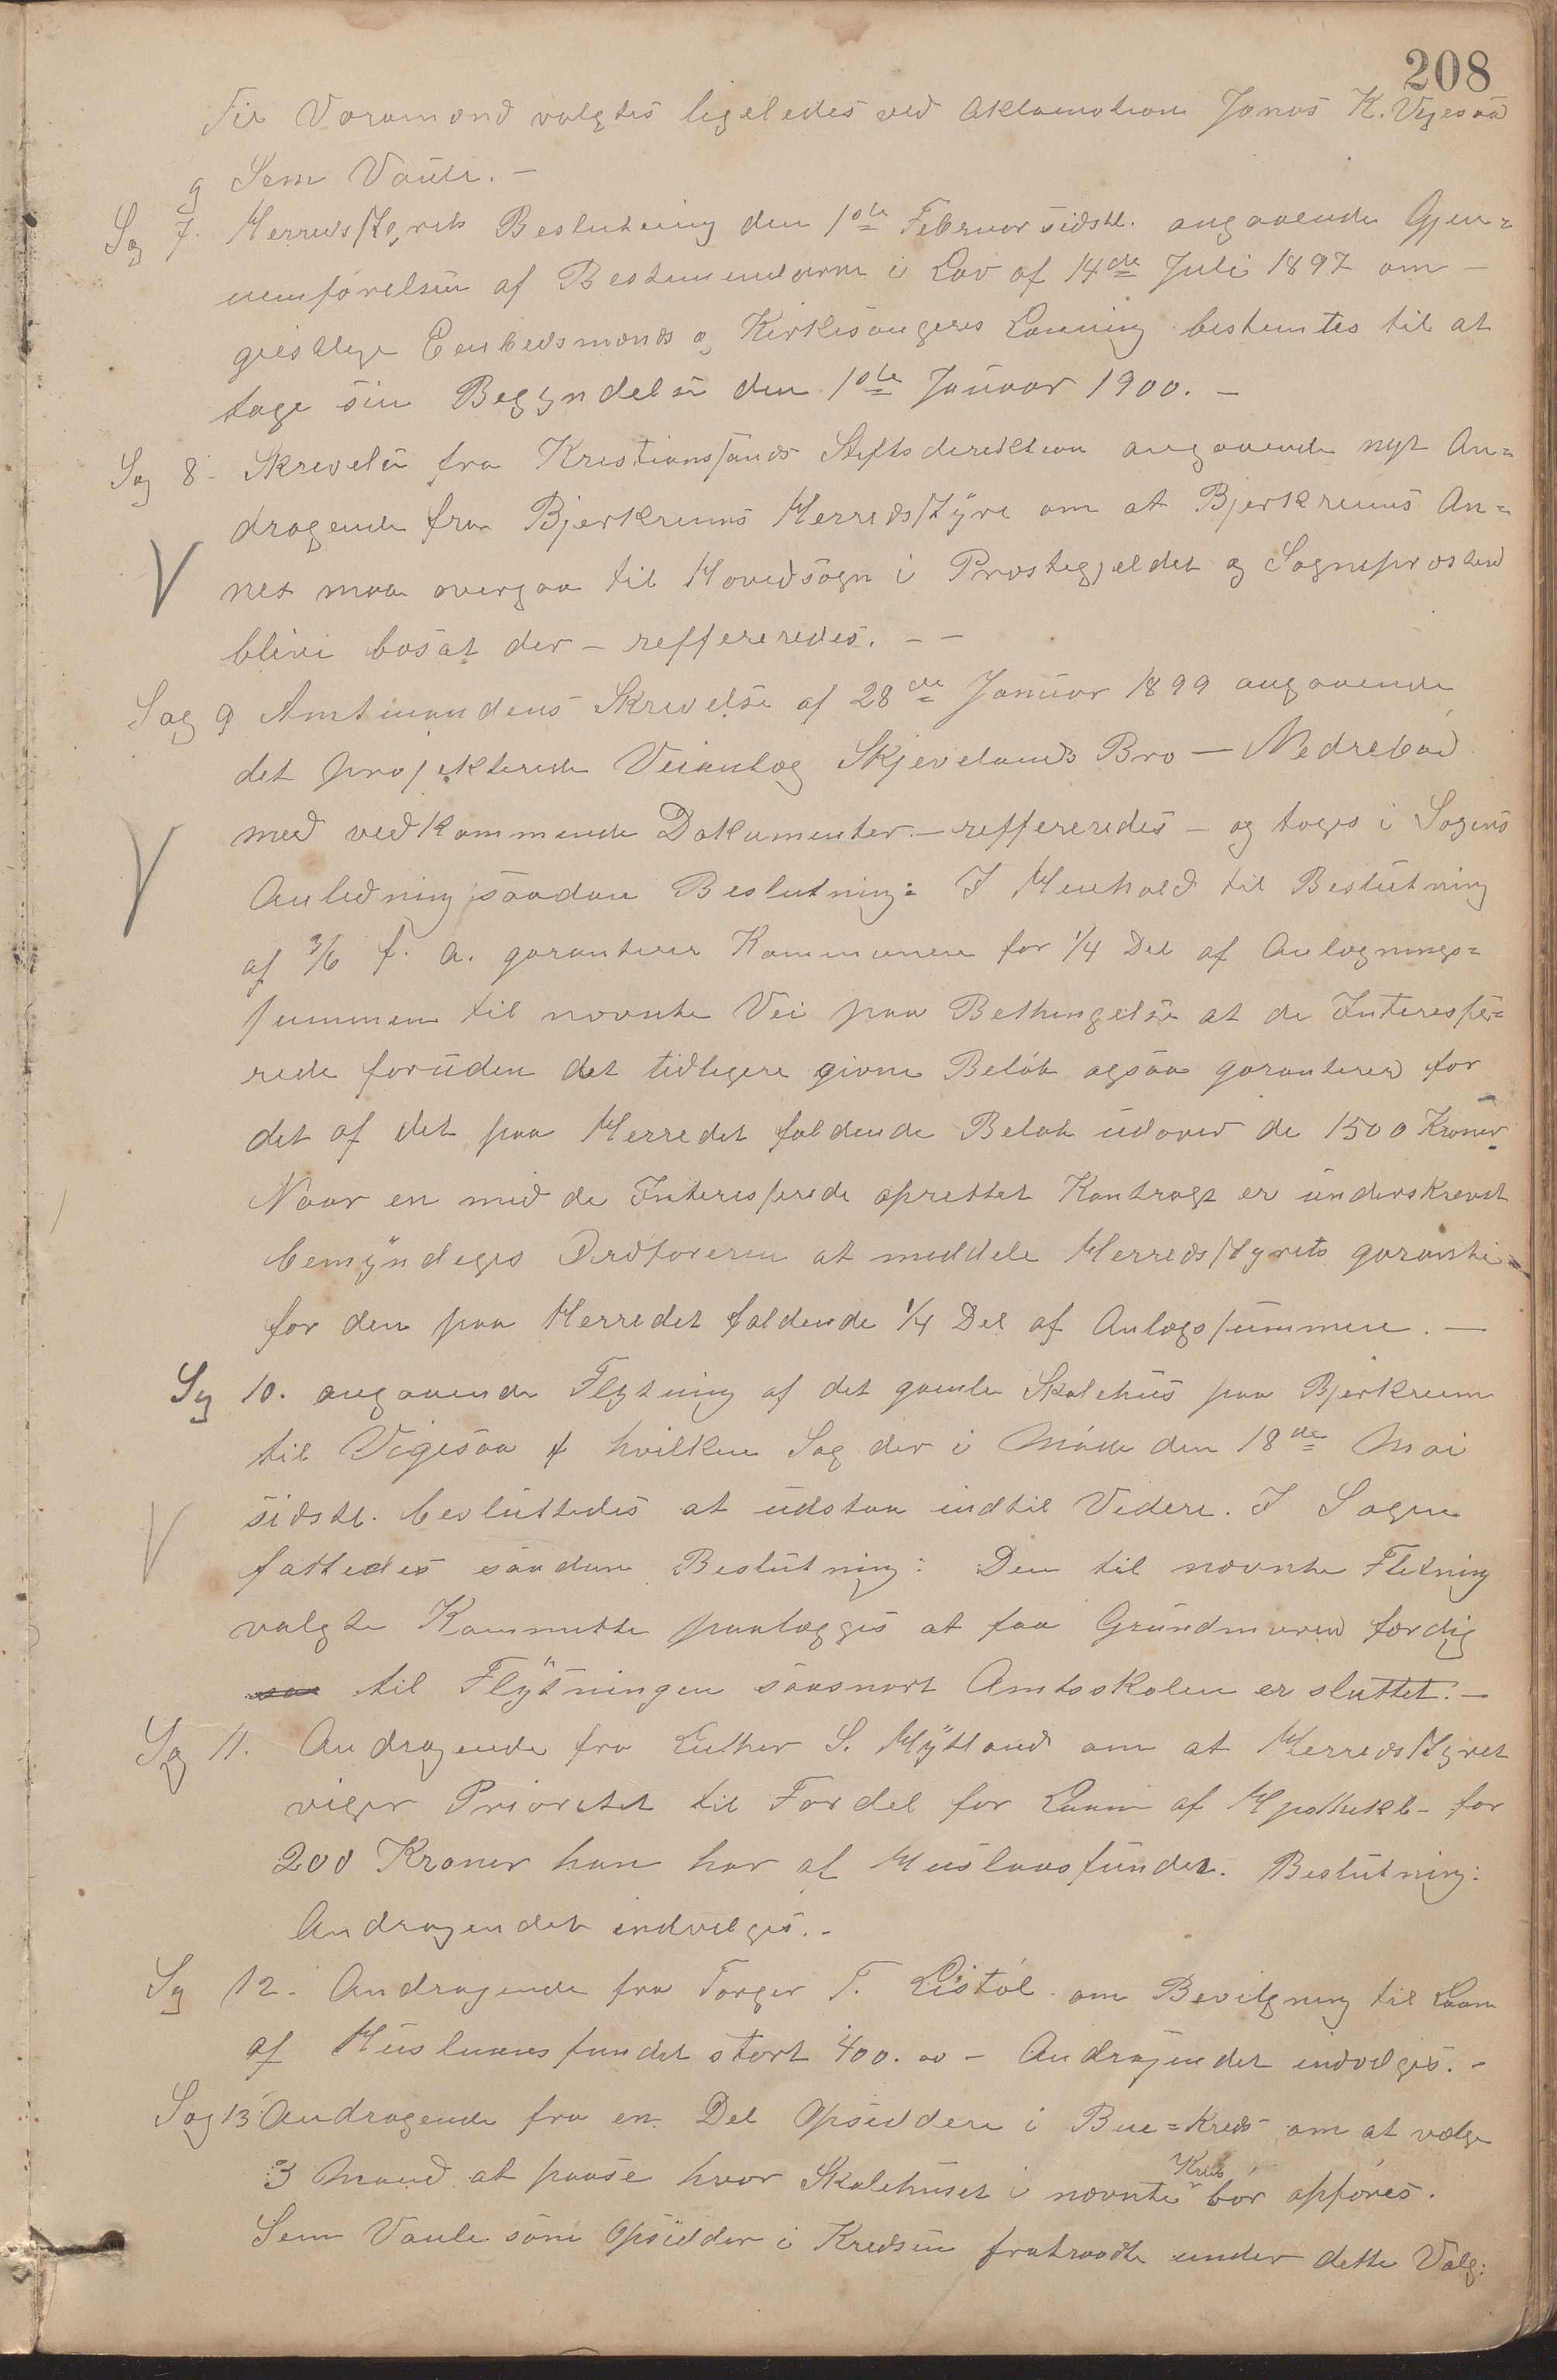 208
Til Varamænd valgtes ligeledes ved Aklamation Jonas K. Vigesaa
g Sem Vaule. –
Sag 7. Herredsstyrets Beslutning den 1ste Februar sidstl. angaaende Gjen=
nemførelsen af Bestemmelserne i Lov af 14de Juli 1897 om –
geistlige Embedsmænds og Kirkesangeres Lønning bestemtes til at
tage sin Begyndelse den 1ste Januar 1900. –
Sag 8. Skrivelse fra Kristianssands Stiftsdirektion angaaende nyt An=
dragende fra Bjerkreims Herredsstyre om at Bjerkreims An=
nex maa overgaa til Hovedsogn i Præstegjeldet og Sognepræsten
blive bosat der – reffereredes. – –
Sag 9 Amtmandens Skrivelse af 28de Januar 1899 angaaende
det projekterede Veianlæg Skjevelands Bro – Nedrebød
med vedkommende Dokumenter – reffereredes – og toges i Sagens
Anledning saadan Beslutning: I Henhold til Beslutning
af 3/6 f. A. garanterer Kommunen for 1/4 Del af Anlægnings=
summen til nævnte Vei paa Bethingelse at de Interesse=
rede foruden det tidligere givne Beløb ogsaa garanterer for
det af det paa Herredet faldende Beløb udover de 1500 Kroner.
Naar en med de Interesserede oprettet Kontragt er underskrevet
bemyndiges Ordføreren at meddele Herredsstyrets garanti
for den paa Herredet faldende 1/4 Del af Anlægssummen. –
Sag 10. angaaende Flytning af det gamle Skolehus paa Bjerkreim
til Vigesaa hvilken Sag der i Møde den 18de Mai
sidstl. besluttedes at udstaa indtil Videre. I Sagen
fattedes saadan Beslutning: Den til nævnte Fletning
valgte Kommitte paalægges at faa Grundmuren færdig
til Flytningen saasnart Amtsskolen er sluttet. –
Sag 11. Andragende fra Luther S. Hytland om at Herredsstyret
viger Prioritet til Fordel for Laan af Hypothekb – for
200 Kroner han har af Huslaansfundet. Beslutning:
Andragendet indvilges. –
Sag 12. Andragende fra Torger T. Eistøl om Bevilgning til Laan
af Huslaansfundet stort 400.00 – Andragendet indvilges. –
Sag 13 Andragende fra en Del Opsiddere i Bue=Kreds om at vælge
3 Mænd at paase hvor Skolehuset i nævnte Kreds bør opføres.
Sem Vaule som Opsidder i Kredsen fratraadte under dette Valg: